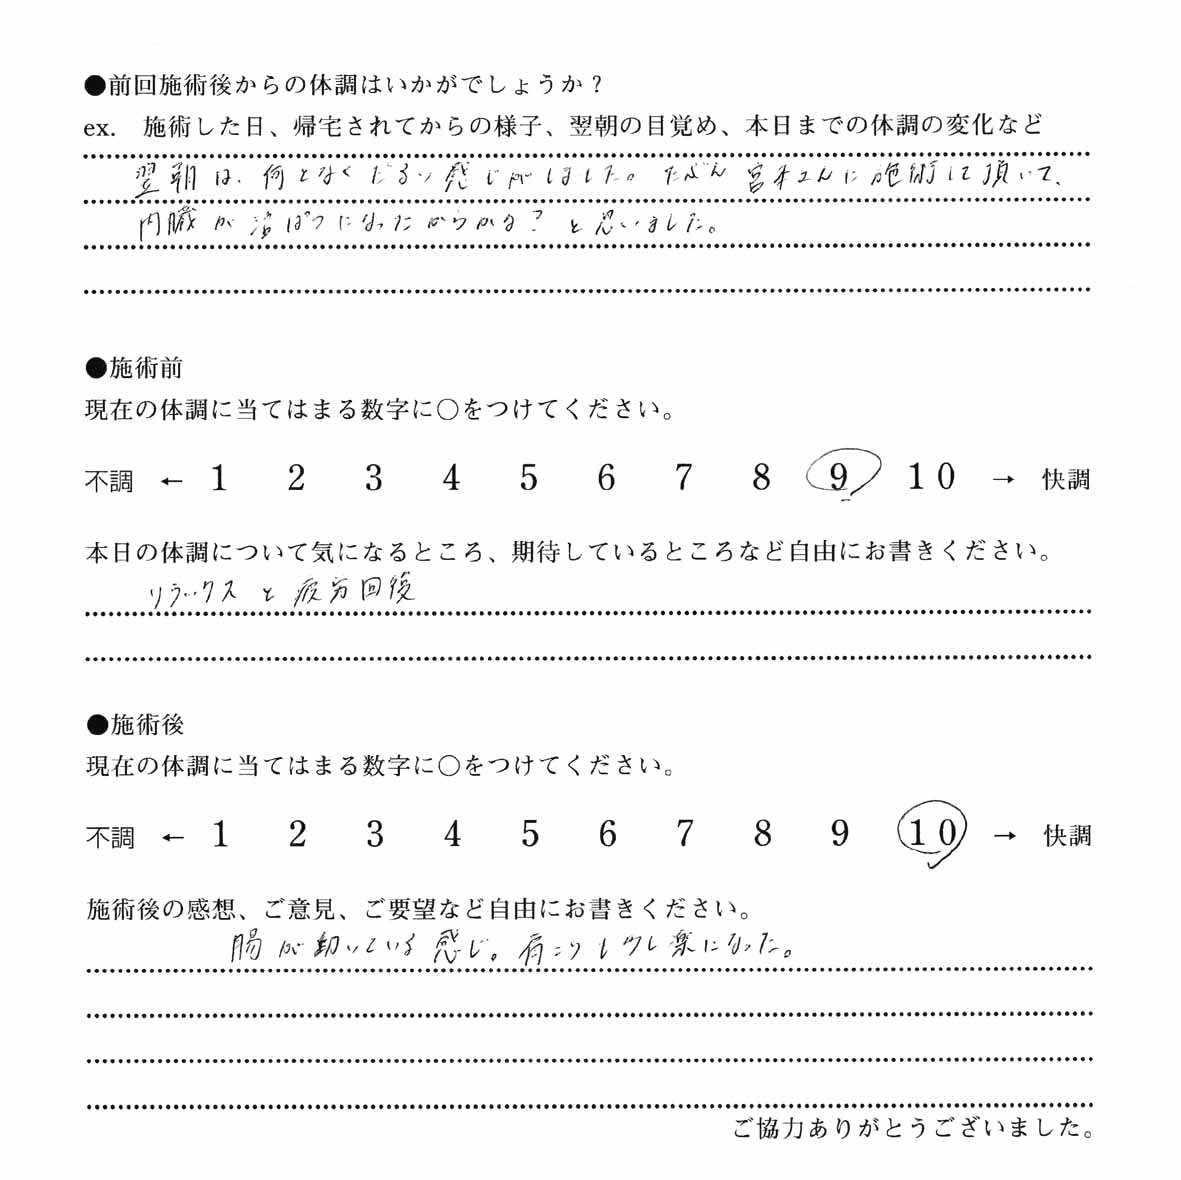 ●前回施術後からの体調はいかがでしょうか？
ex.　施術した日、帰宅されてからの様子、翌朝の目覚め、本日までの体調の変化など
翌朝は、何となくだるい感じがしました。たぶん宮本さんに施術して頂いて、
内臓が活ぱつになったからかな？と思いました。
●施術前
現在の体調に当てはまる数字に○をつけてください。
不調 ← 1 2 3 4 5 6 7 8 9 10 → 快調
本日の体調について気になるところ、期待しているところなど自由にお書きください。
リラックスと疲労回復
●施術後
現在の体調に当てはまる数字に○をつけてください。
不調 ← 1 2 3 4 5 6 7 8 9 10 → 快調
施術後の感想、ご意見、ご要望など自由にお書きください。
腸が動いている感じ。肩こりも少し楽になった。
ご協力ありがとうございました。